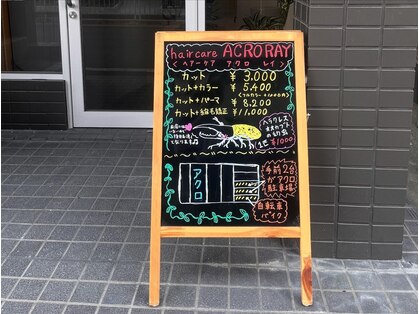 haircare ACRO RAY
(ヘアーケア アクロ レイ)
カット ￥3,000
カット+カラー ￥5,400
(フルカラー+1000円)
カット+パーマ ￥8,200
カット+縮毛矯正 ￥11,000
ヘラクレス
1匹 ￥1000
アクロ
手前2台
がアクロ
駐車場
自転車
バイク